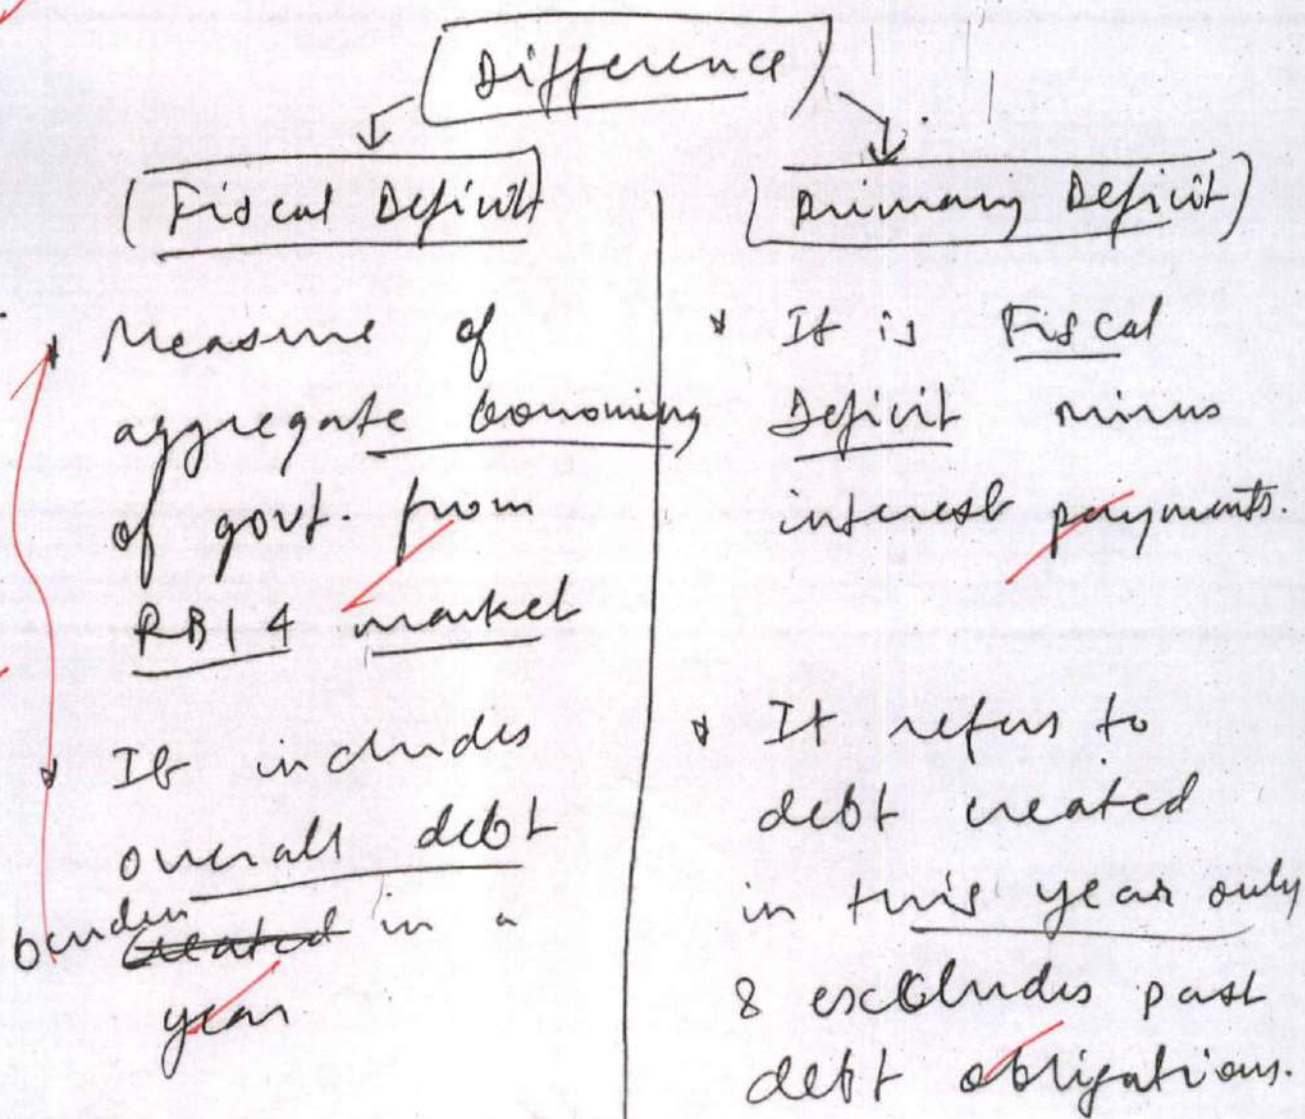 Difference
Fiscal Deficit
Measure of
aggregate borrowing
of govt. from
RBI & market
It includes
overall debt
burden created in a
year
Primary Deficit
It is Fiscal
Deficit minus
interest payments.
It refers to
debt created
in this year only
& excludes past
debt obligations.